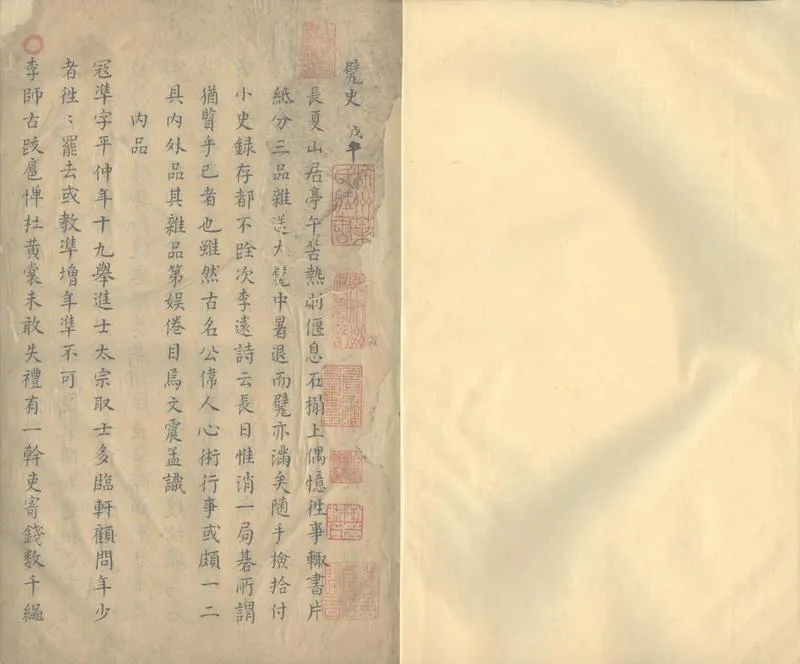 甓史 戊午
長夏山居亭午苦熱則偃息石榻上偶憶徃事輙書片
紙分三品雜送大甓中暑退而甓亦滿矣随手撿拾付
小史録存都不詮次李遠詩云長日惟消一局碁所謂
猶賢乎已者也雖然古名公偉人心術行事或頗一二
具内外品其雜品第娱倦目焉文震孟識
内品
冦準字平仲年十九舉進士太宗取士多臨軒顧問年少
者徃〻罷去或教準增年準不可
李師古跋扈憚杜黄裳未敢失禮有一幹吏寄錢数千繩